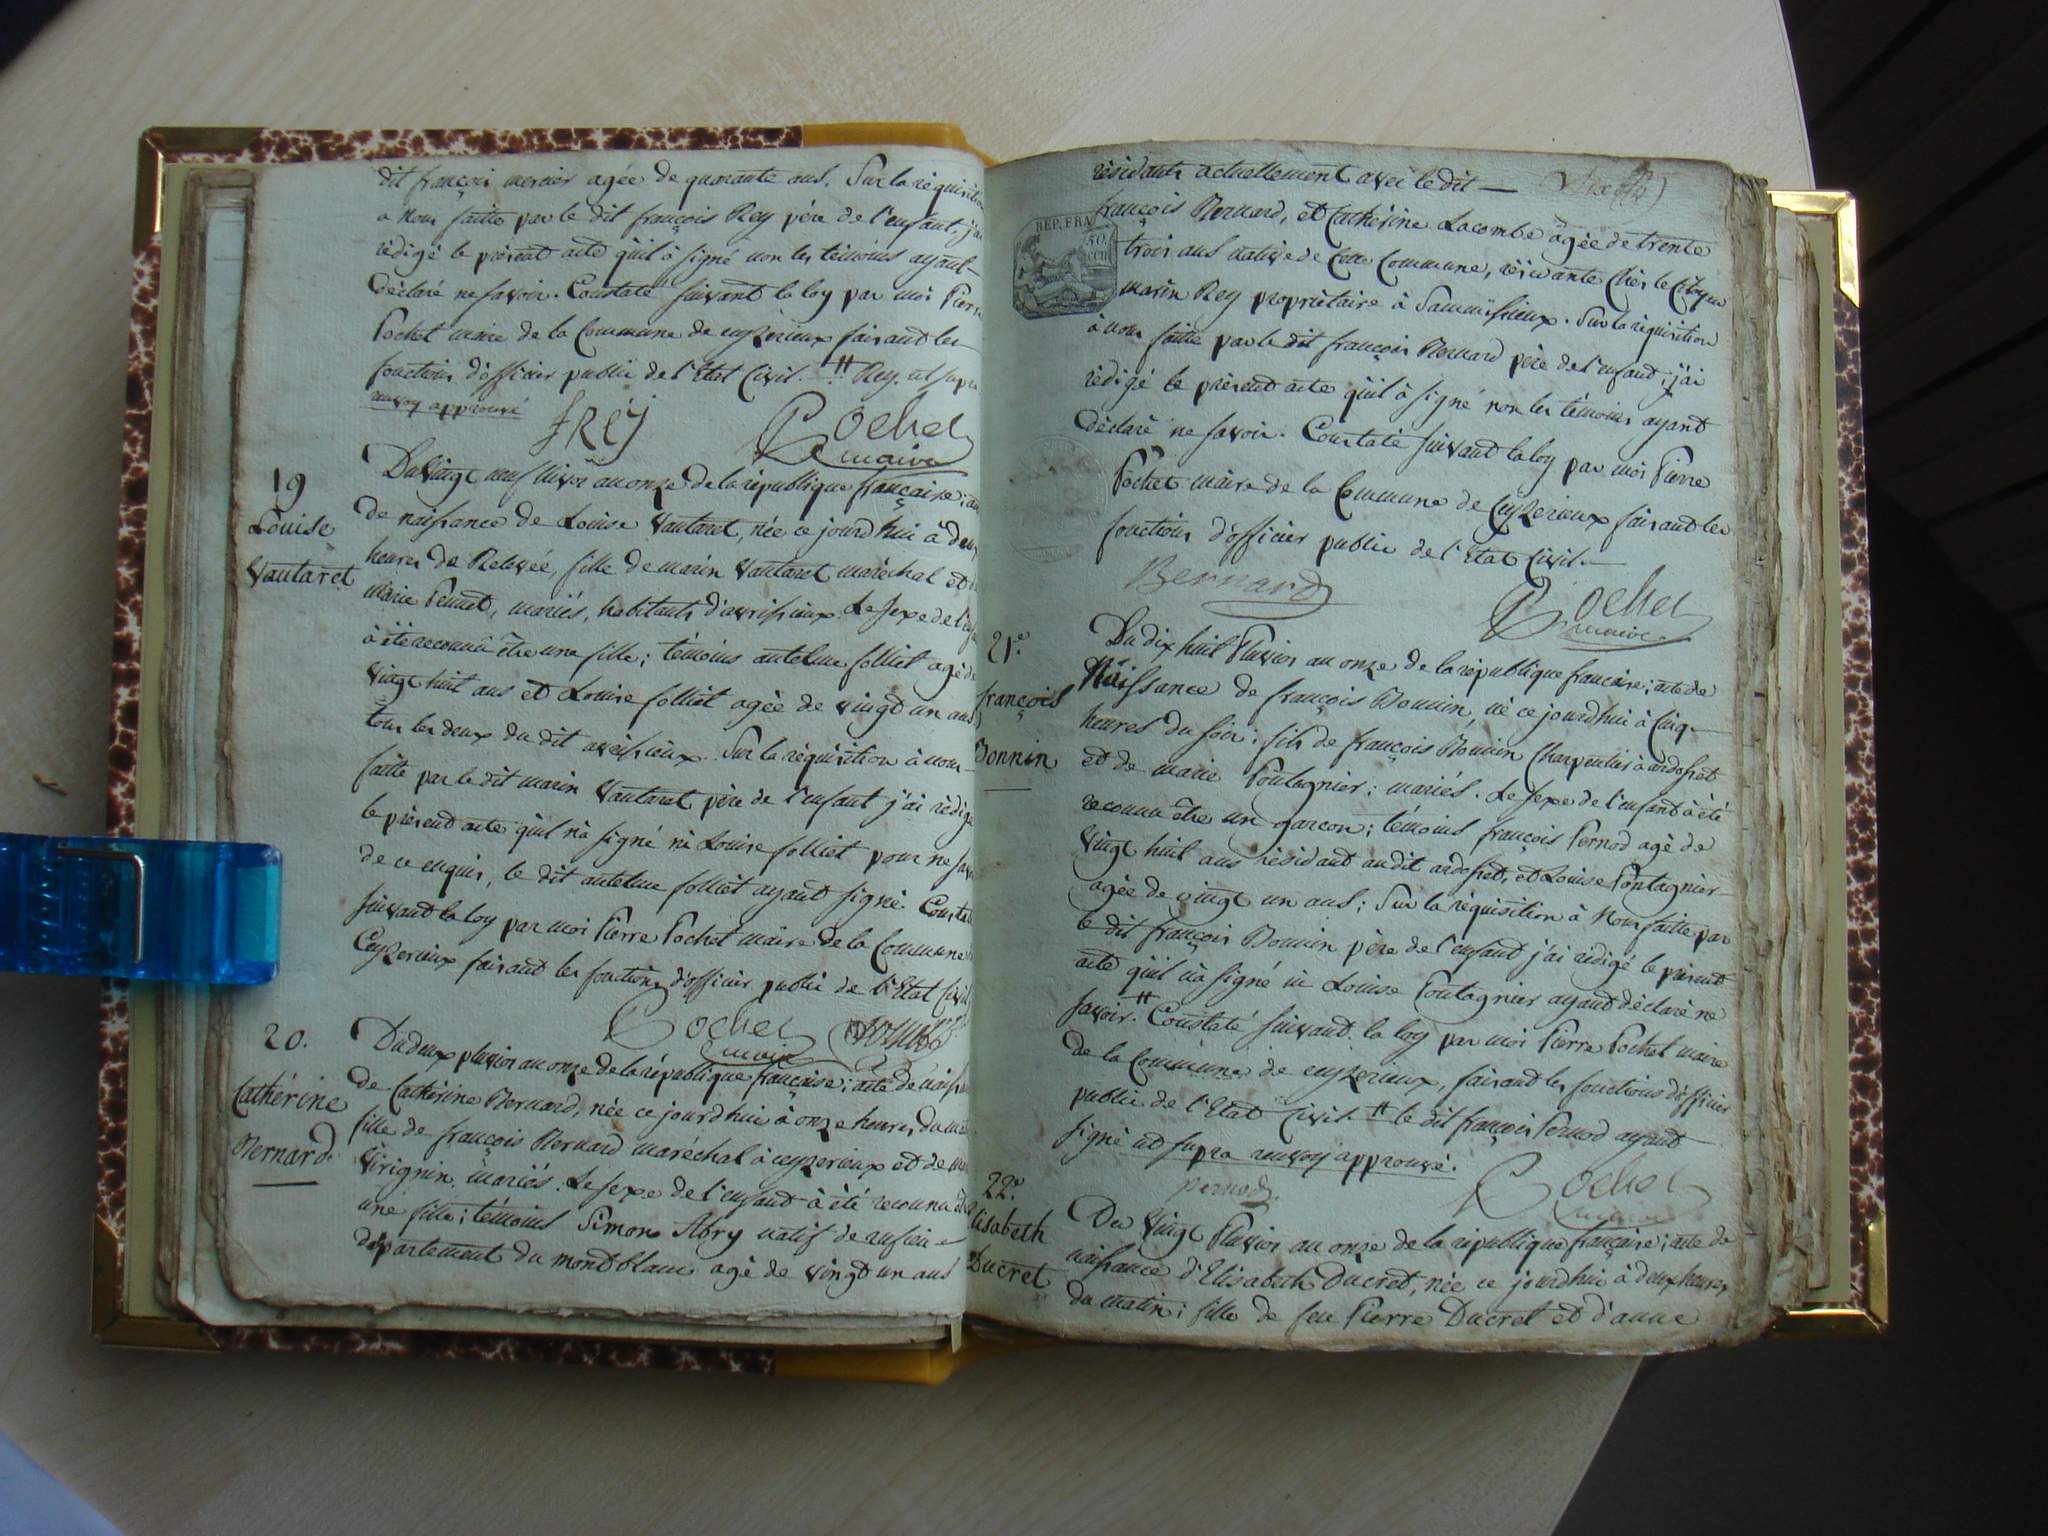 dit françois mercier agée de quarante ans. Sur la réquisition
a nous faitte par le dit françois Rey père de l'enfant, j'ai
rédigé le présent acte qu'il à signé non les témoins ayant
déclaré ne savoir. Constaté suivant la loy par moi Pierre
Pochet maire de la Commune de ceyzerieux faisant les
fonctions d'officier public de l'Etat Civil. Rey, ut supra
renvoy approuvé
f Rey
Pochet
maire
19
Louise
Vautaret
Du Vingt neuf Nivos an onze de la république française; acte
de naissance de Louise Vautaret, née ce jourd'hui à deux
heures de Relevée, fille de marin Vautaret maréchal et de
marie Pennet, mariés, habitants d'avrissieux. Le sexe de l'enfant
à été reconnu être une fille; témoins antelme folliet agé de
Vingt huit ans et Louise folliet agée de vingt un ans
tous les deux du dit avrissieux. Sur la réquisition à nous
faitte par le dit marin Vautaret père de l'enfant j'ai rédigé
le présent acte qu'il n'à signé ni Louise folliet pour ne savoir
de ce enquis, le dit antelme folliet ayant signé. Constaté
suivant la loy par moi Pierre Pochet maire de la Commune
Ceyzerieux faisant les fonctions d'officier public de l'Etat Civil
Pochet
maire
20.
Cathérine
Bernard
Du deux pluvios an onze de la république française; acte de naissance
de Cathérine Bernard, née ce jourd'hui à onze heures du matin
fille de françois Bernard maréchal à ceyzerieux et de
Virignin, mariés. Le sexe de l'enfant à été reconnu
une fille; témoins Simon Abry natif de
département du mont blanc agé de vingt un ans
résidant actuellement avec le dit
REP. FRA
50
cen
françois Bernard, et Cathérine Lacombe agée de trente
trois ans native de cette Commune, résidante chés le Citoyen
marin Rey propriétaire à Sammissieux. Sur la réquisition
à nous faitte par le dit françois Bernard père de l'enfant, j'ai
rédigé le présent acte qu'il à signé non les témoins ayant
déclaré ne savoir. Constaté suivant la loy par moi Pierre
Pochet maire de la Commune de Ceyzerieux faisant les
fonctions d'officier public de l'Etat Civil.
Bernard
Pochet
maire
21.e
françois
Bonnin
Du dix huit Pluvios an onze de la république française; acte de
Naissance de françois Bonnin, né ce jourd'hui à cinq
heures du soir; fils de françois Bonnin Charpentier à ardosset
et de marie Poulagnier; mariés. Le sexe de l'enfant à été
reconnu être un garçon; témoins françois Pernod agé de
Vingt huit ans résidant au dit ardosset, et Louise Pontagnier
agée de vingt un ans; Sur la réquisition à Nous faitte par
le dit françois Bonnin père de l'enfant j'ai rédigé le présent
acte qu'il n'à signé ni Louise Pontagnier ayant déclaré ne
savoir. # Constaté suivant la loy par moi Pierre Pochet maire
de la Commune de ceyzerieux, faisant les fonctions d'officier
public de l'Etat Civil. # le dit françois Pernod ayant
signé ut supra renvoy approuvé.
pernod
Pochet
maire
22.e
Elisabeth
Ducret
Du Vingt Pluvios an onze de la république française; acte de
naissance d'Elisabeth Ducret, née ce jourd'hui à deux heures
du matin; fille de feu Pierre Ducret et d'anne